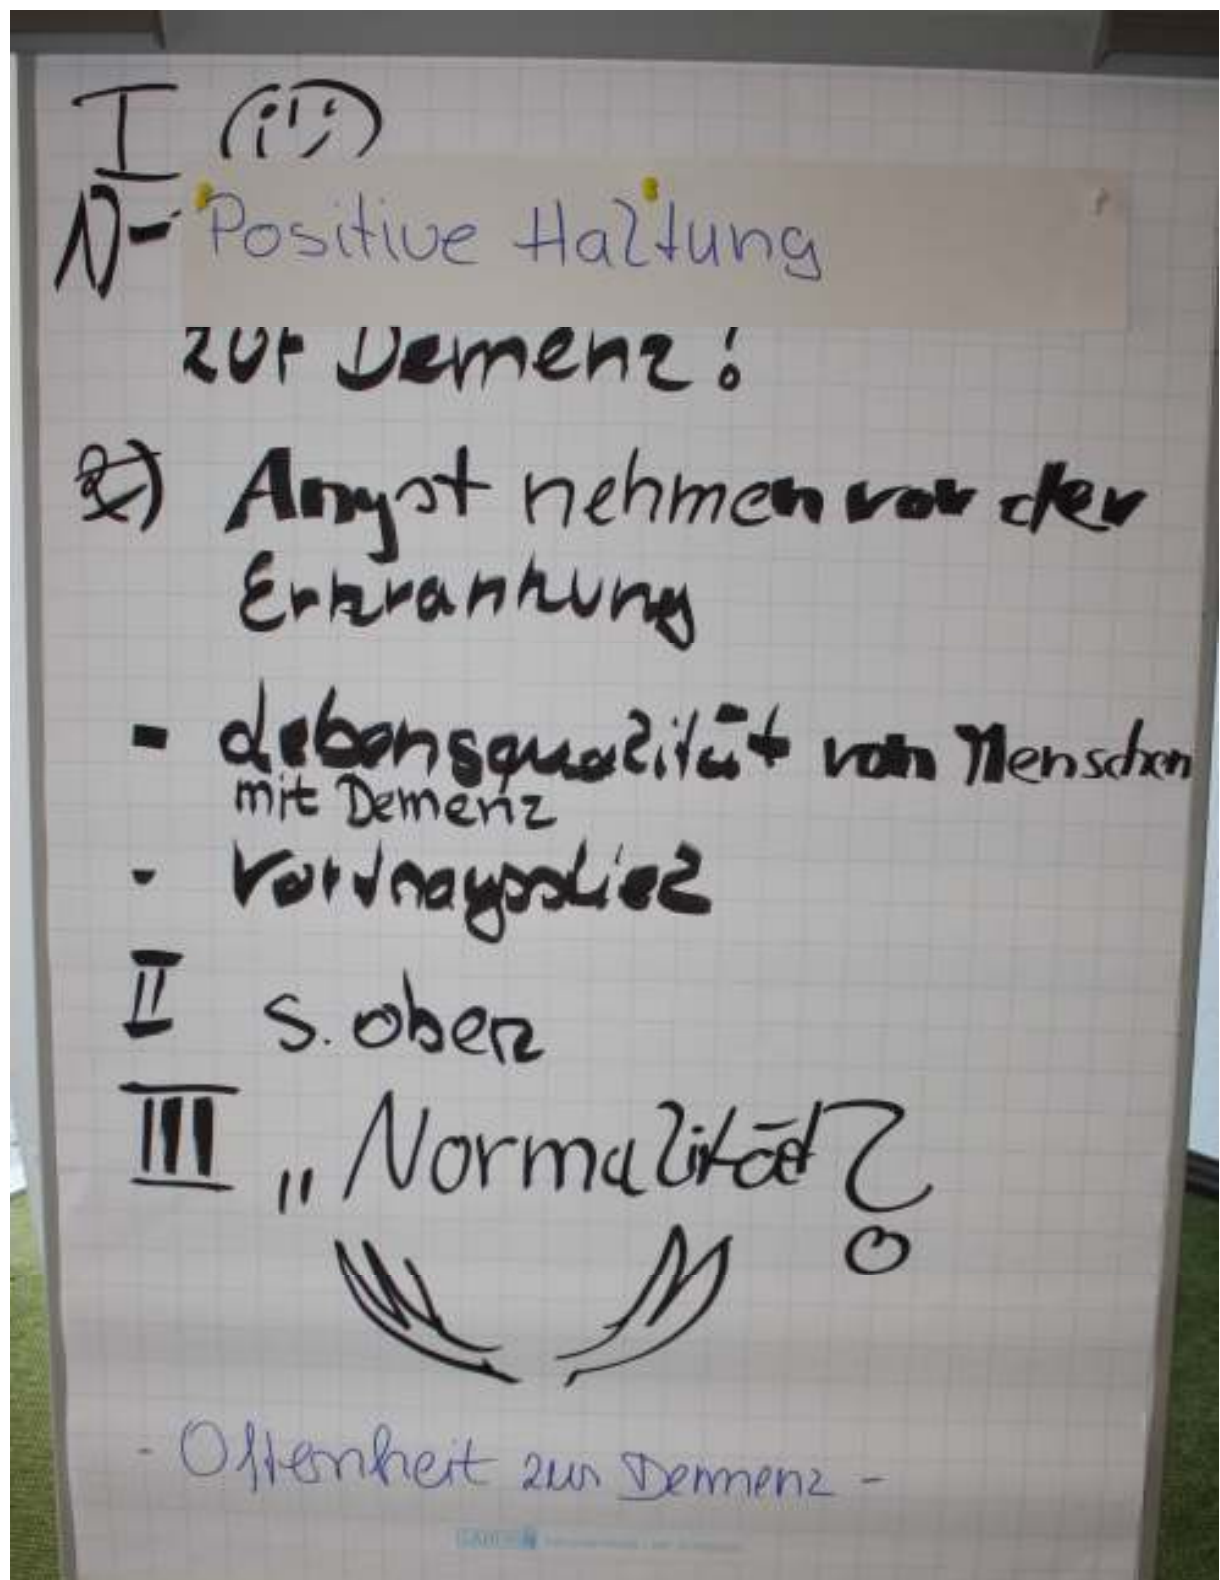 I
Positive Haltung
zur Demenz!
2) Angst nehmen vor der
Erkrankung
- Lebensqualität von Menschen
mit Demenz
-
II s. oben
III „Normalität?
- Offenheit zur Demenz -